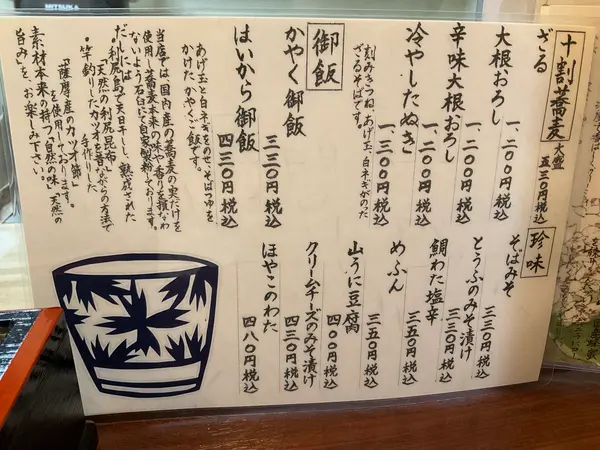 十割蕎麦 大盛 五三〇円税込
ざる
大根おろし 一、二〇〇円税込
辛味大根おろし 一、二〇〇円税込
冷やしたぬき 一、三〇〇円税込
刻みきつね、あげ玉、白ネギがのた
ざるそばです。
御飯
かやく御飯 三三〇円税込
はいから御飯 四三〇円税込
あげ玉と白ネギをのせ、そばつゆを
かけた かやくご飯です。
当店では、国内産の蕎麦の実だけを
使用し蕎麦本来の味や香りを損なわ
ないよう石臼にて自家製粉しております。
だしには
「利尻島で天日干しし、熟成された
天然の利尻昆布」
「竿釣りしたカツオを昔ながらの方法で
手作りした
薩摩産のカツオ節」
を使用しております。
素材本来の持つ、自然の味、天然の
旨みを、お楽しみ下さい。
珍味
そばみそ 三三〇円税込
とうふのみそ漬け 三三〇円税込
鯛わた塩辛
めふん 三五〇円税込
山うに豆腐 四〇〇円税込
クリームチーズのみそ漬け 四三〇円税込
ほやこのわた 四八〇円税込